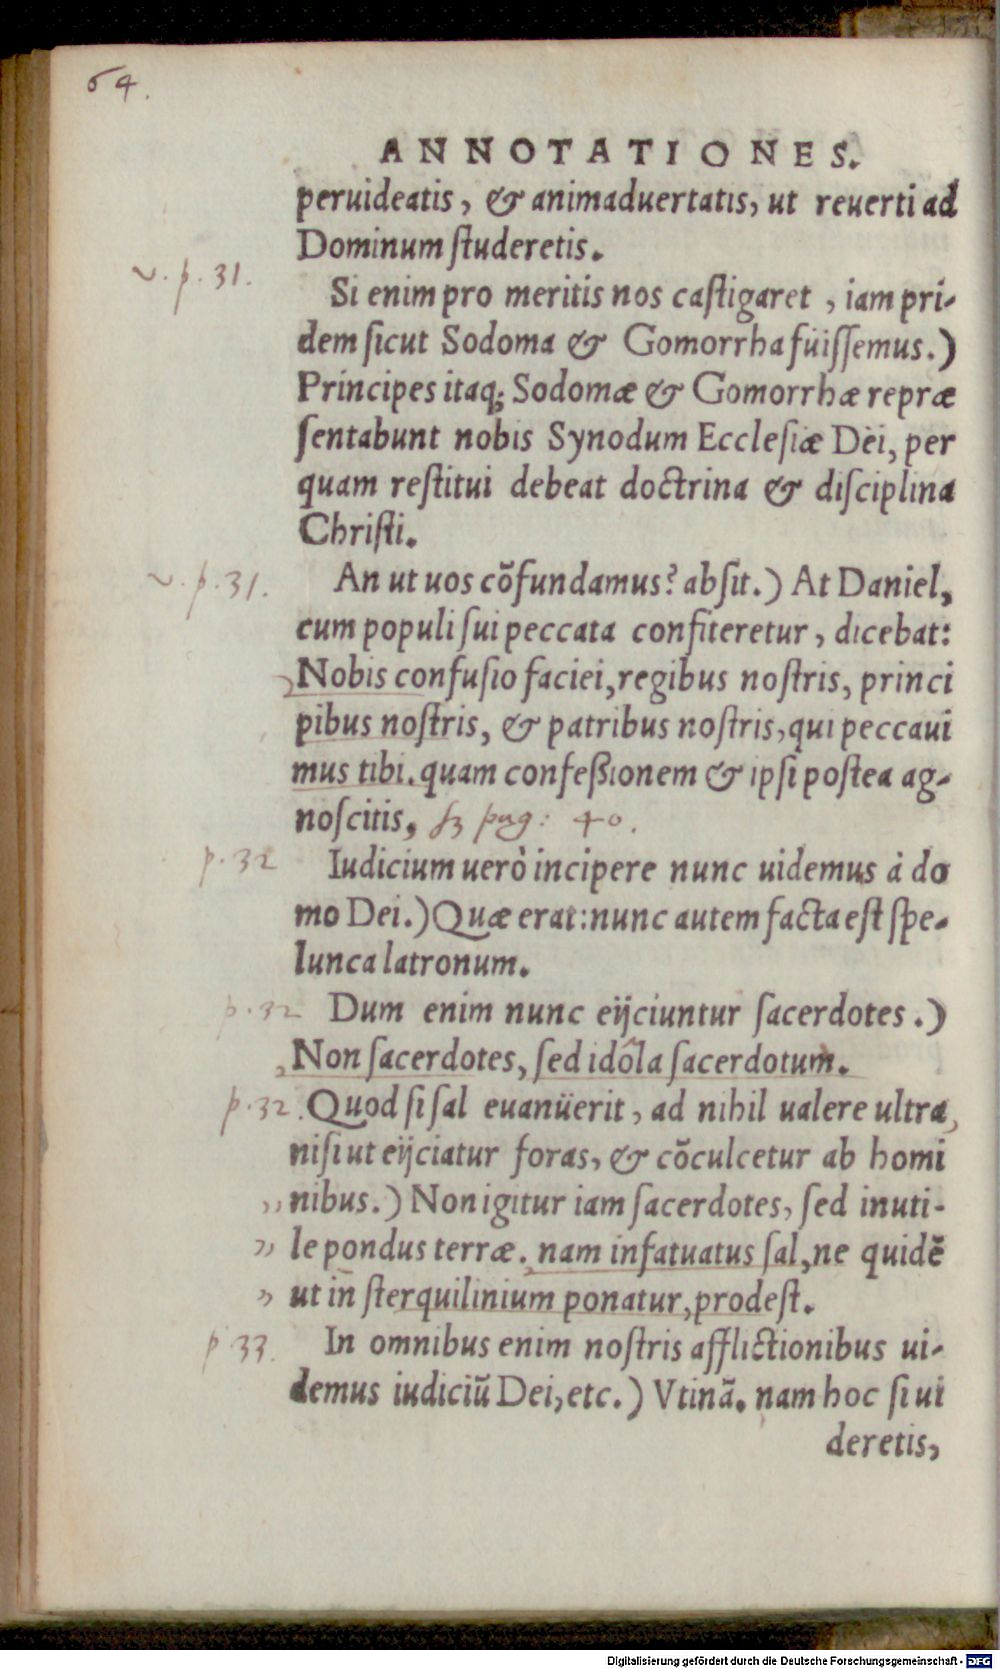 64.
ANNOTATIONES.
peruideatis, & animaduertatis, ut reuerti ad
Dominum ſtuderetis.
v. p. 31.
Si enim pro meritis nos caſtigaret, iam pri-
dem ſicut Sodoma & Gomorrha fuiſſemus.)
Principes itaq; Sodomæ & Gomorrhæ repræ
ſentabunt nobis Synodum Eccleſiæ Dei, per
quam reſtitui debeat doctrina & diſciplina
Chriſti.
v. p. 31.
An ut uos cõfundamus? abſit.) At Daniel,
cum populi ſui peccata confiteretur, dicebat:
Nobis confuſio faciei, regibus noſtris, princi
pibus noſtris, & patribus noſtris, qui peccaui
mus tibi. quam confeßionem & ipſi poſtea ag-
noſcitis, pag: 40.
p. 32
Iudicium uerò incipere nunc uidemus à do
mo Dei.) Quæ erat: nunc autem facta eſt ſpe-
lunca latronum.
p. 32
Dum enim nunc eijciuntur ſacerdotes.)
Non ſacerdotes, ſed idôla ſacerdotum.
p. 32.
Quod ſi ſal euanüerit, ad nihil ualere ultra,
niſi ut eijciatur foras, & cõculcetur ab homi
nibus.) Non igitur iam ſacerdotes, ſed inuti-
le pondus terræ. nam infatuatus ſal, ne quidẽ
ut in ſterquilinium ponatur, prodeſt.
p 33.
In omnibus enim noſtris afflictionibus ui-
demus iudiciũ Dei, etc.) Vtinã. nam hoc ſi ui
deretis,
Digitalisierung gefördert durch die Deutsche Forschungsgemeinschaft - DFG